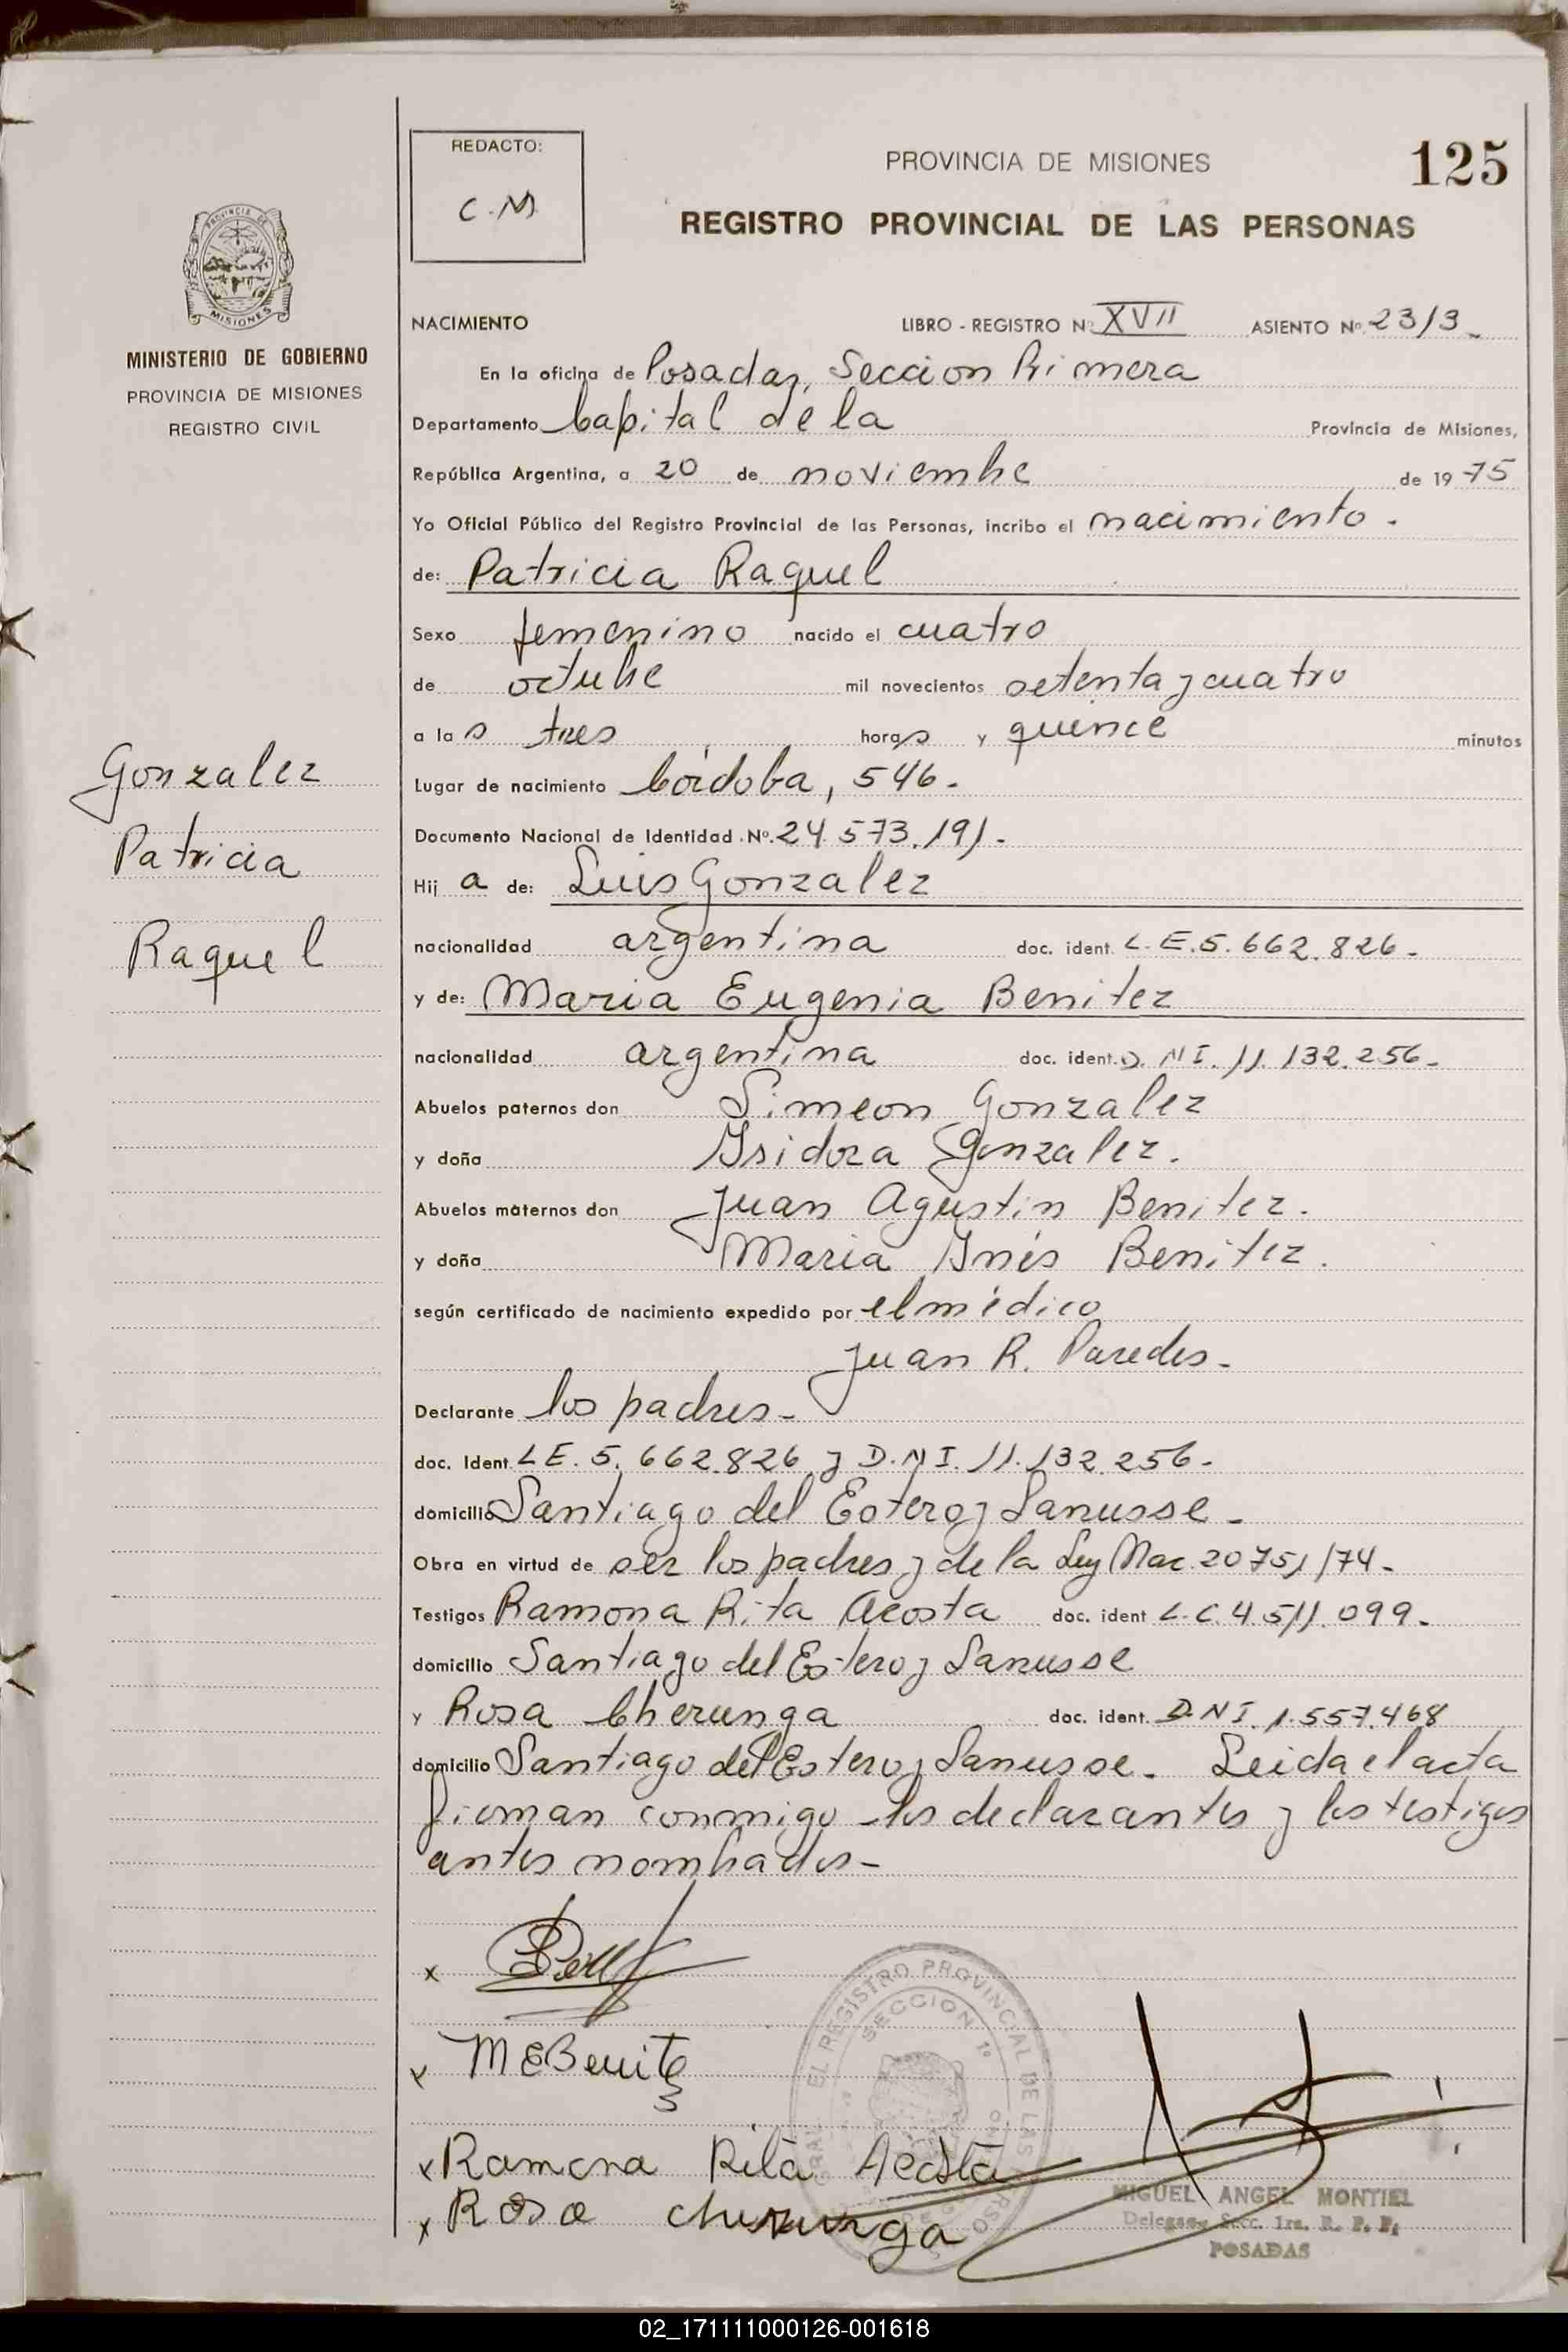 REDACTO:
C.M
PROVINCIA DE MISIONES
125
REGISTRO PROVINCIAL DE LAS PERSONAS
PROVINCIA DE
MISIONES
MINISTERIO DE GOBIERNO
PROVINCIA DE MISIONES
REGISTRO CIVIL
NACIMIENTO LIBRO - REGISTRO Nº XVII ASIENTO Nº 23/3_
En la oficina de Posadas, Seccion Primera
Departamento Capital de la Provincia de Misiones,
República Argentina, a 20 de noviembre de 1975
Yo Oficial Público del Registro Provincial de las Personas, incribo el nacimiento.
de: Patricia Raquel
Sexo femenino nacido el cuatro
de octubre mil novecientos setenta y cuatro
a las tres horas y quince minutos
Gonzalez
Patricia
Raquel
Lugar de nacimiento Córdoba, 546.
Documento Nacional de Identidad Nº. 24.573.191-
Hija de: Luis Gonzalez
nacionalidad argentina doc. ident. L.E. 5.662.826-
y de: Maria Eugenia Benitez
nacionalidad argentina doc. ident. D.NI. 11.132.256-
Abuelos paternos don Simeon Gonzalez
y doña Isidora Gonzalez.
Abuelos maternos don Juan Agustin Benitez.
y doña Maria Inés Benitez.
según certificado de nacimiento expedido por el médico
Juan R. Paredes-
Declarante los padres-
doc. Ident. LE. 5.662.826 y D.NI. 11.132.256-
domicilio Santiago del Estero y Lanusse-
Obra en virtud de ser los padres y de la Ley Nac. 20751/74-
Testigos Ramona Rita Acosta doc. ident L.C. 4.511.099-
domicilio Santiago del Estero y Lanusse
y Rosa Cherunga doc. ident. D.NI. 1.557.468
domicilio Santiago del Estero y Lanusse. Leida el acta
firman conmigo los declarantes y los testigos
antes nombrados-
x
x MEBenitez
x Ramona Rita Acosta
x Rosa cherunga
EL REGISTRO PROVINCIAL DE LAS PERSO
SECCION 1º
MIGUEL ANGEL MONTIEL
Delegado Secc. 1ra. R. P. P.
POSADAS
02_171111000126-001618